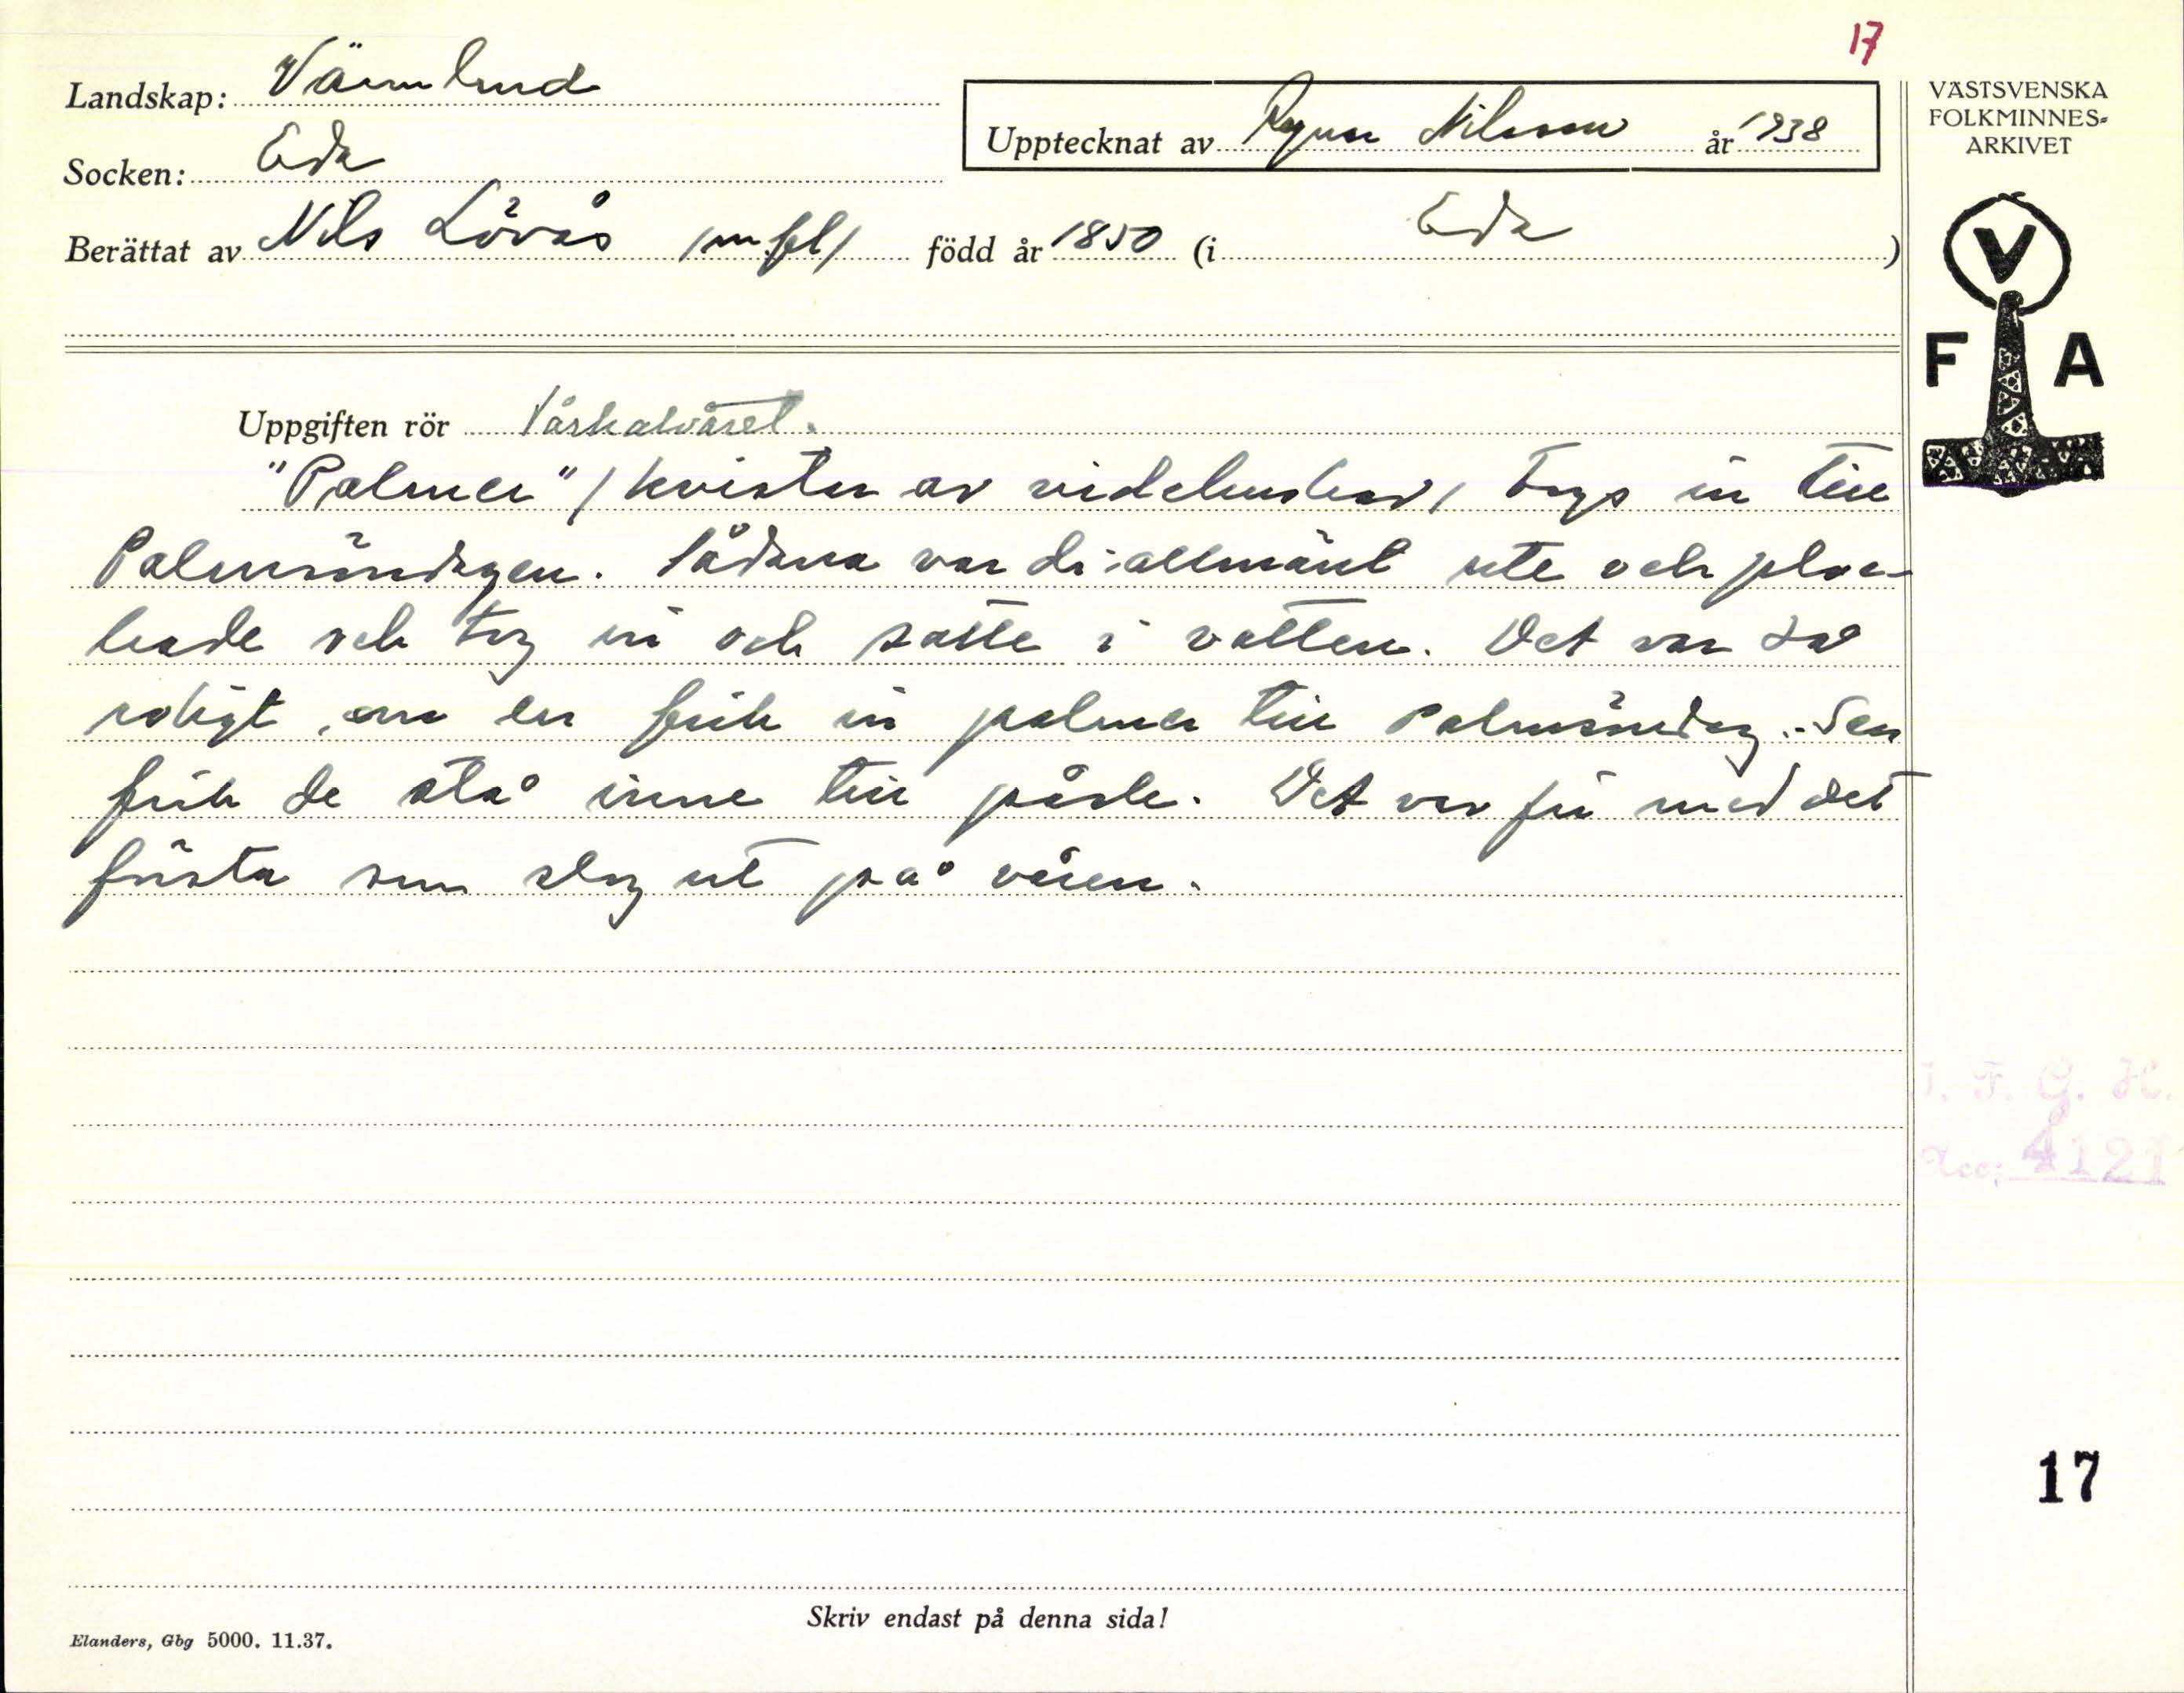 17
Landskap: Värmland
Socken: Eda
Berättat av Nils Lövås /m fl/ född år 1850 (i Eda)
Upptecknat av Ragnar Nilsson år 1938
VÄSTSVENSKA
FOLKMINNES-
ARKIVET
V
F A
Uppgiften rör Vårhalvåret.
"Palmer" / kvistar av videbuskar / togs in till
Palmsöndagen. Sådana var di allmänt ute och ploc-
kade och tog in och satte i vatten. Det var så
roligt, om en fick in palmer till Palmsöndag. Sen
fick de stå inne till påsk. Det var fin med det
första som slog ut på våren.
I. F. G. H.
Acc: 4121
17
Skriv endast på denna sida!
Elanders, Gbg 5000. 11.37.